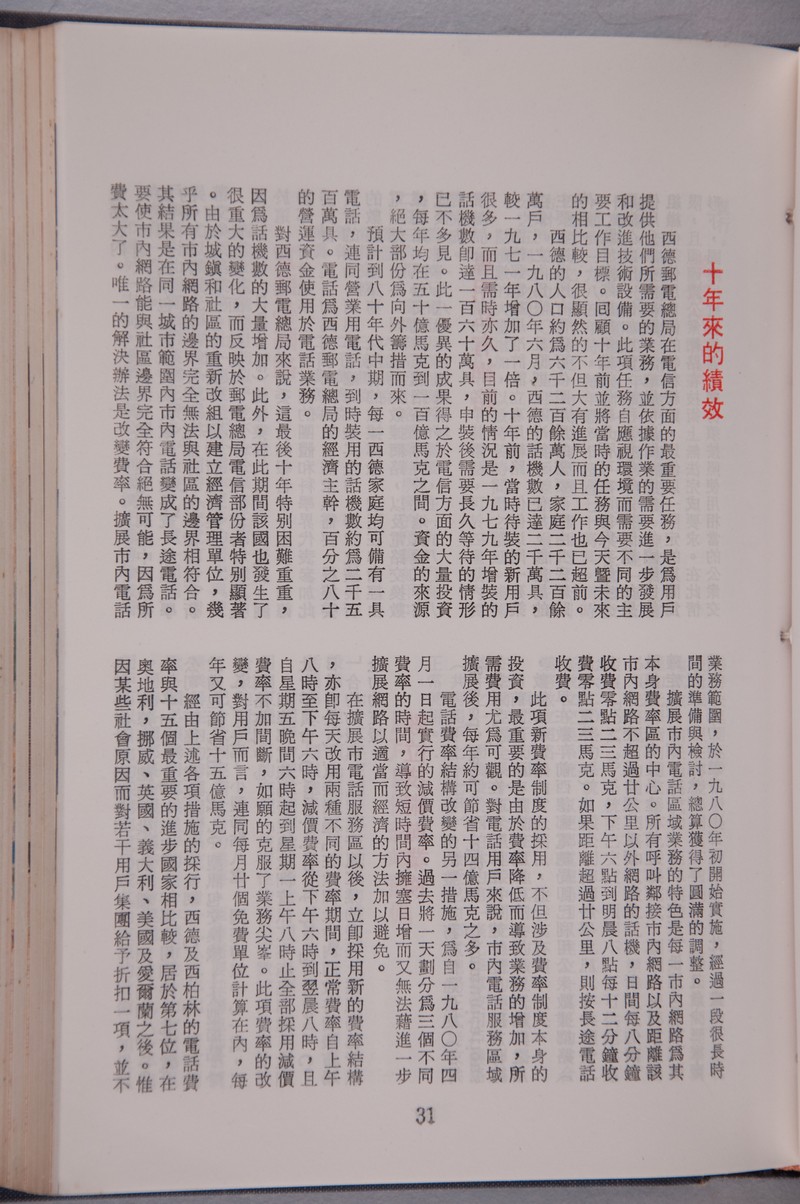 十年來的績效
西德郵電總局在電信方面的最重要任務，是爲用戶
提供他們所需要的業務，並依據作業的需要進一步發展
和改進技術設備。此項任務自應視環境而需要不同的主
要工作目標。回顧十年前並將當時的任務與今天暨未來
的相比較，很顯然的不但大有進展而且工作也已超前。
西德的人口約爲六千二百餘萬人，家庭二千二百餘
萬戶，一九八〇年六月，西德的話機數已達二千萬具，
較一九七一年增加了一倍。十年前，當時待裝的新用戶
很多，而且需時亦久，目前的情況是一九七九年增裝的
話機數卽達一百六十萬具，申裝後需要長久等待的情形
已不多見。此一優異的成果得之於電信方面的大量投資
，每年均在五十億馬克到一百億馬克之間。資金的來源
，絕大部份爲向外籌措而來。
預計到八十年代中期，每一西德家庭均可備有一具
電話，連同營業用電話，到時裝用的話機數約爲二千五
百萬具。電話爲西德郵電總局的經濟主幹，百分之八十
的營運資金使用於電話業務。
對西德郵電總局來說，這最後十年特別困難重重，
因爲話機數的大量增加。此外，在此期間該國也發生了
很重大的變化，而反映於郵電總局電信部份者特別顯著
。由於城鎭和社區的重新改組以建立經濟管理單位，幾
乎所有市內網路的邊界完全無法與社區的邊界相符合。
其結果是在同一城市範圍內市內電話變成了長途電話。
要使市內網路能與社區邊界完全符合絕無可能，因爲所
費太大了。唯一的解決辦法是改變費率。擴展市內電話
業務範圍，於一九八〇年初開始實施，經過一段很長時
間的準備與檢討，總算獲得了圓滿的調整。
擴展市內電話區域業務的特色是每一市內網路爲其
本身費率區的中心。所有呼叫鄰接市內網路以及距離該
市內網路不超過廿公里以外網路的話機，日間每八分鐘
收費零點二三馬克，下午六點到明晨八點每十二分鐘收
費零點二三馬克。如果距離超過廿公里，則按長途電話
收費。
此項新費率制度的採用，不但涉及費率制度本身的
投資，最重要的是由於費率降低而導致業務的增加，所
需費用尤爲可觀。對電話用戶來說，市內電話服務區域
擴展後，每年約可節省十四億馬克之多。
電話費率結構改變的另一措施，爲自一九八〇年四
月一日起實行的減價費率。過去將一天劃分爲三個不同
費率的時間，導致短時間內擁塞日增而又無法藉進一步
擴展網路以適當而經濟的方法加以避免。
在擴展市電話服務區以後，立卽採用新的費率結構
，亦卽每天改用兩種不同的費率期間，正常費率自上午
八時至下午六時，減價費率從下午六時到翌晨八時，且
自星期五晚間六時起到星期一上午八時止全部採用減價
費率不加間斷，如願的克服了業務尖峯。此項費率的改
變，對用戶而言，連同每月廿個免費單位計算在內，每
年又可節省十五億馬克。
經由上述各項措施的採行，西德及西柏林的電話費
率與十五個最重要的進步國家相比較，居於第七位，在
奧地利，挪威、英國、義大利、美國及愛爾蘭之後。惟
因某些社會原因而對若干用戶集團給予折扣一項，並不
31